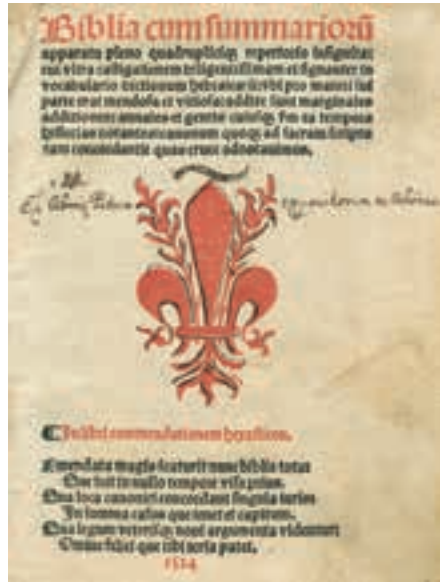 Biblia cum summariorū
apparatu pleno quadrupliciqꝫ repertorio insignita:
cui vltra castigationem diligentissimam et signanter in
vocabulario dictionum hebraicarū vbi pro maiori sui
parte erat mendosa et vitiosa: addite sunt marginales
additiones annales et gentiū cuiusqꝫ
historias notantes: canonum quoqꝫ ad sacram scriptu
ram concordantie que cruce adnotauimus.
In libri commendationem hexasticon.
Emendata magis scaturit nunc biblia tota
Que fuit in nullo tempore visa prius.
Qua loca canonici concordant singula iuris
In summa casus que tenet et capitum.
Qua legum veterisqꝫ noui argumenta videntur
Omne
1514